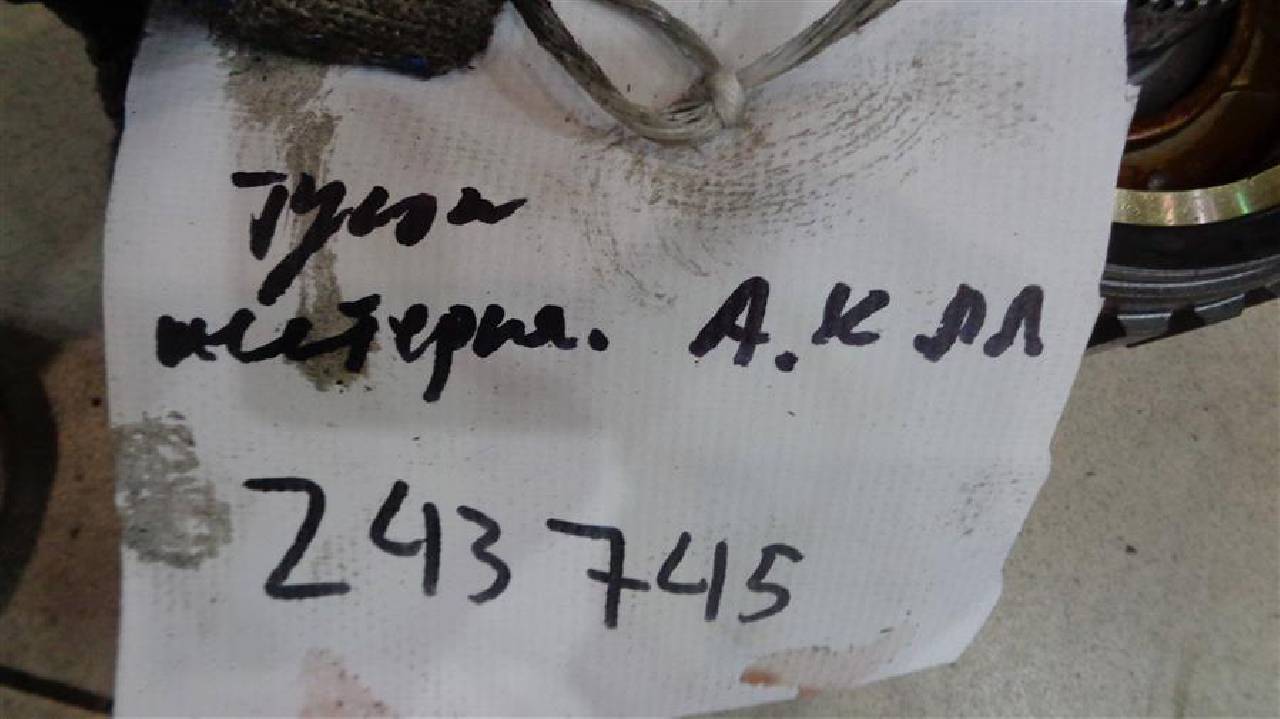 Тусон
шестерня. А.К ПП
243745